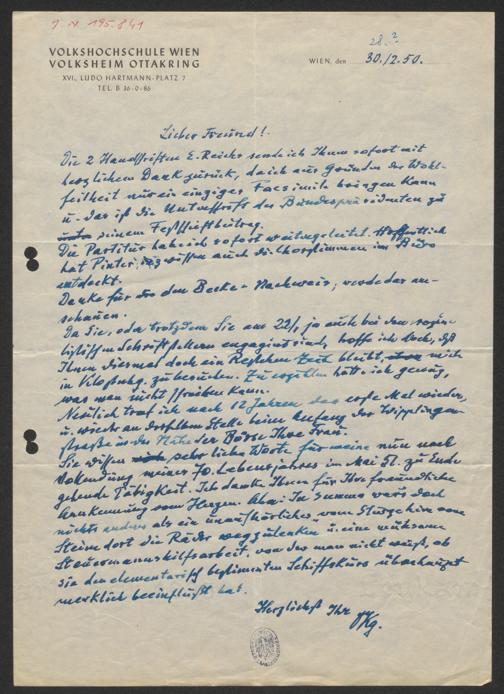 J. N. 195.841
VOLKSHOCHSCHULE WIEN
VOLKSHEIM OTTAKRING
XVI., LUDO HARTMANN-PLATZ 7
TEL. B 36-0-86
28.?
WIEN, den 30./2.50.
Lieber Freund!
Die 2 Handschriften E. Reichs sende ich Ihnen sofort mit
herzlichem Dank zurück, da ich aus Gründen der Wohl-
feilheit nur ein einziges Facsimile bringen kann
u. das ist die Unterschrift des Bundespräsidenten zu
seinem Festschriftbeitrag.
Die Partitur habe ich sofort weitergeleitet. Hoffentlich
hat Pinter, wissen auch die Chorstimmen im Büro
entdeckt.
Danke für den Becke-Nachweis; werde dar an-
schauen.
Da Sie, oder trotzdem Sie am 22/, ja auch bei den sozia-
listischen Schriftstellern engagiert sind, hoffe ich doch, daß
Ihnen diesmal doch ein Restchen Zeit bleibt, mich
in Klosbg. zu besuchen. Zu erzählen hätt ich genug,
was man nicht schreiben kann.
Neulich traf ich nach 12 Jahren das erste Mal wieder,
u. wieder an derselben Stelle beim Anfang der Wipplinger-
straße in der Nähe der Börse Ihre Frau.
Sie wissen sehr liebe Worte für meine nun nach
Vollendung meines 70. Lebensjahres im Mai 51. zu Ende
gehende Tätigkeit. Ich danke Ihnen für Ihre freundliche
Anerkennung vom Herzen. Aber: In summa wars doch
nichts anderes als ein unaufhörliches vom Sturze hier vom
Stein dort die Räder wegzulenken u. eine mühsame
Steuermannshilfsarbeit, von der man nicht weiß, ob
sie den elementarisch bestimmten Schiffskurs überhaupt
merklich beeinflußt hat.
Herzlichst Ihr